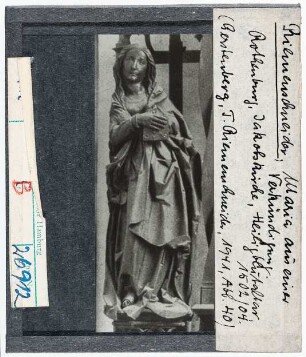 Riemenschneider, Maria aus einer
Verkündigung
Rothenburg, Jakobskirche, Heiligblutaltar,
1502/04
(Gerstenberg, T. Riemenschneider, 1941, Abb. 40)
Hamburg
B
26912